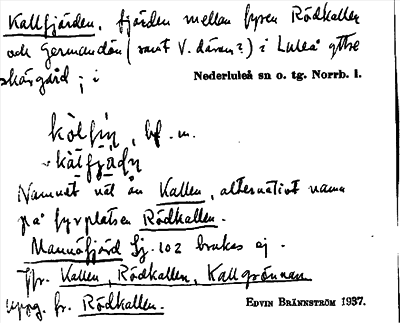 Kallfjärden, fjärden mellan fyren Rödkallen
och Germandön (samt V. däran?) i Luleå yttre
skärgård; i Nederluleå sn o. tg. Norrb. l.
bf. m.
Namnet väl än Kallen, alternativt namn
på fyrplatsen Rödkallen.
Mannöfjärd Sj. 102 brukas ej.
Jfr. Kallen, Rödkallen, Kallgrönnan
uppg. fr. Rödkallen. Edvin Brännström 1937.